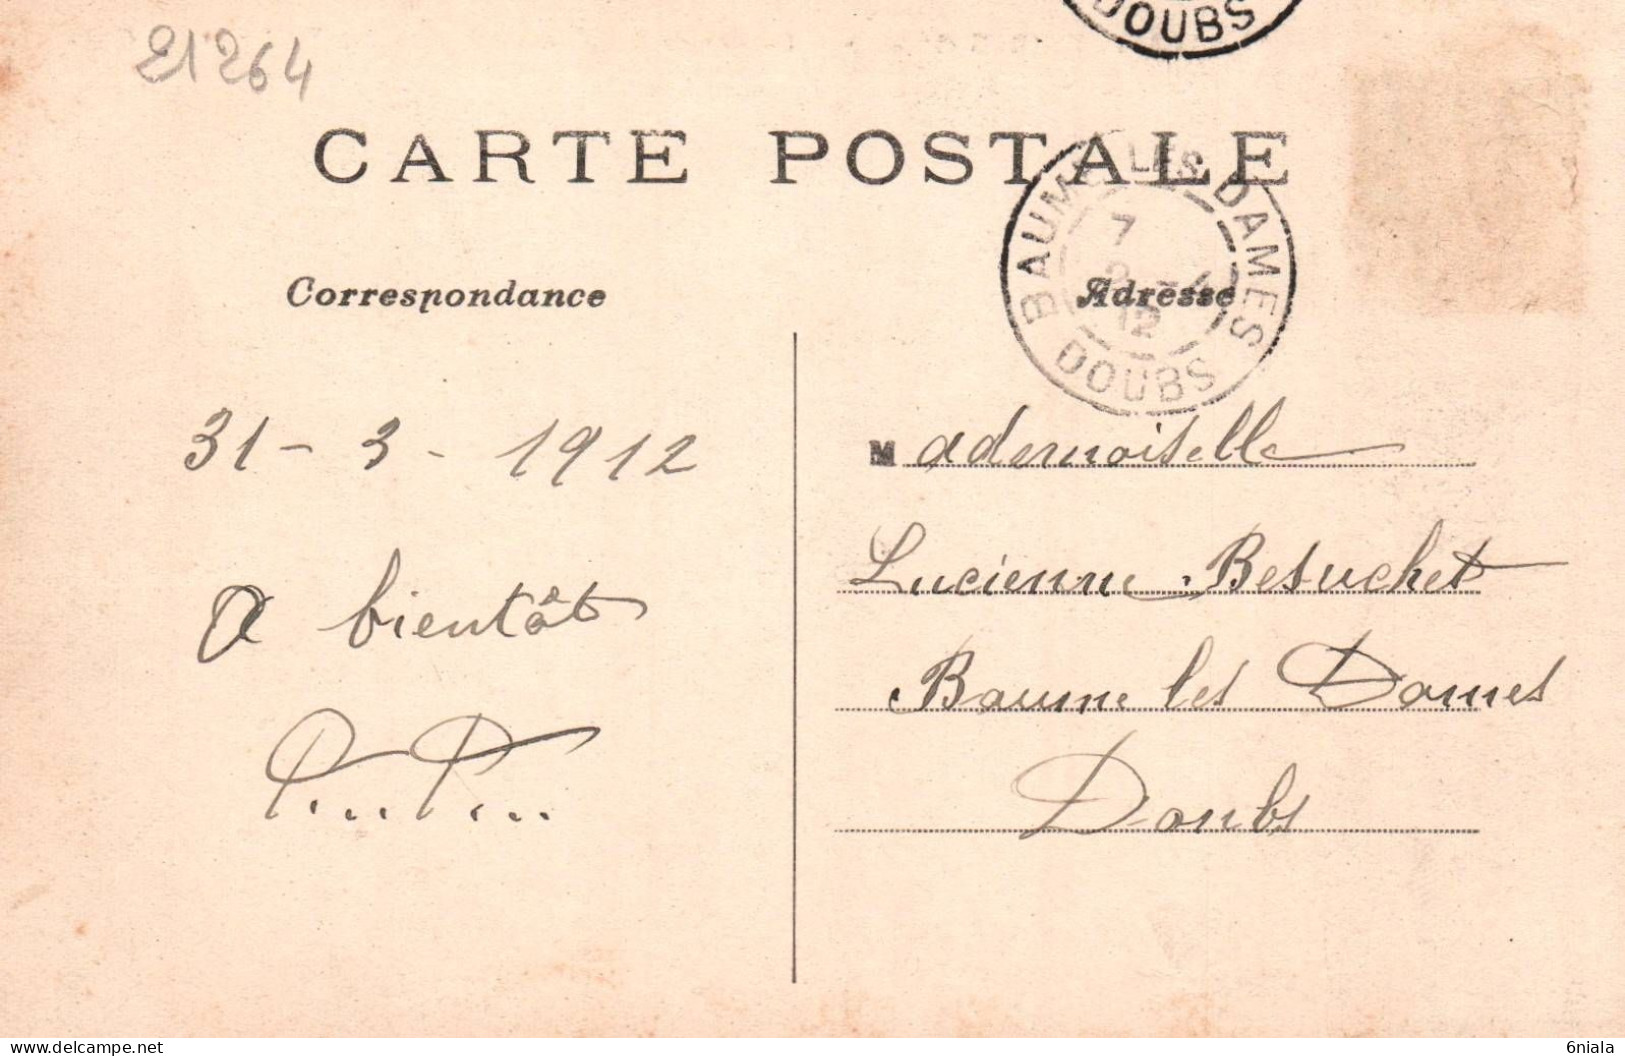 DOUBS
21264
CARTE POSTALE
BAUME-LES-DAMES
7
12
DOUBS
Correspondance
Adresse
31 - 3 - 1912
A bientôt
Mademoiselle
Lucienne Besuchet
Baume les Dames
Doubs
delcampe.net
6niala